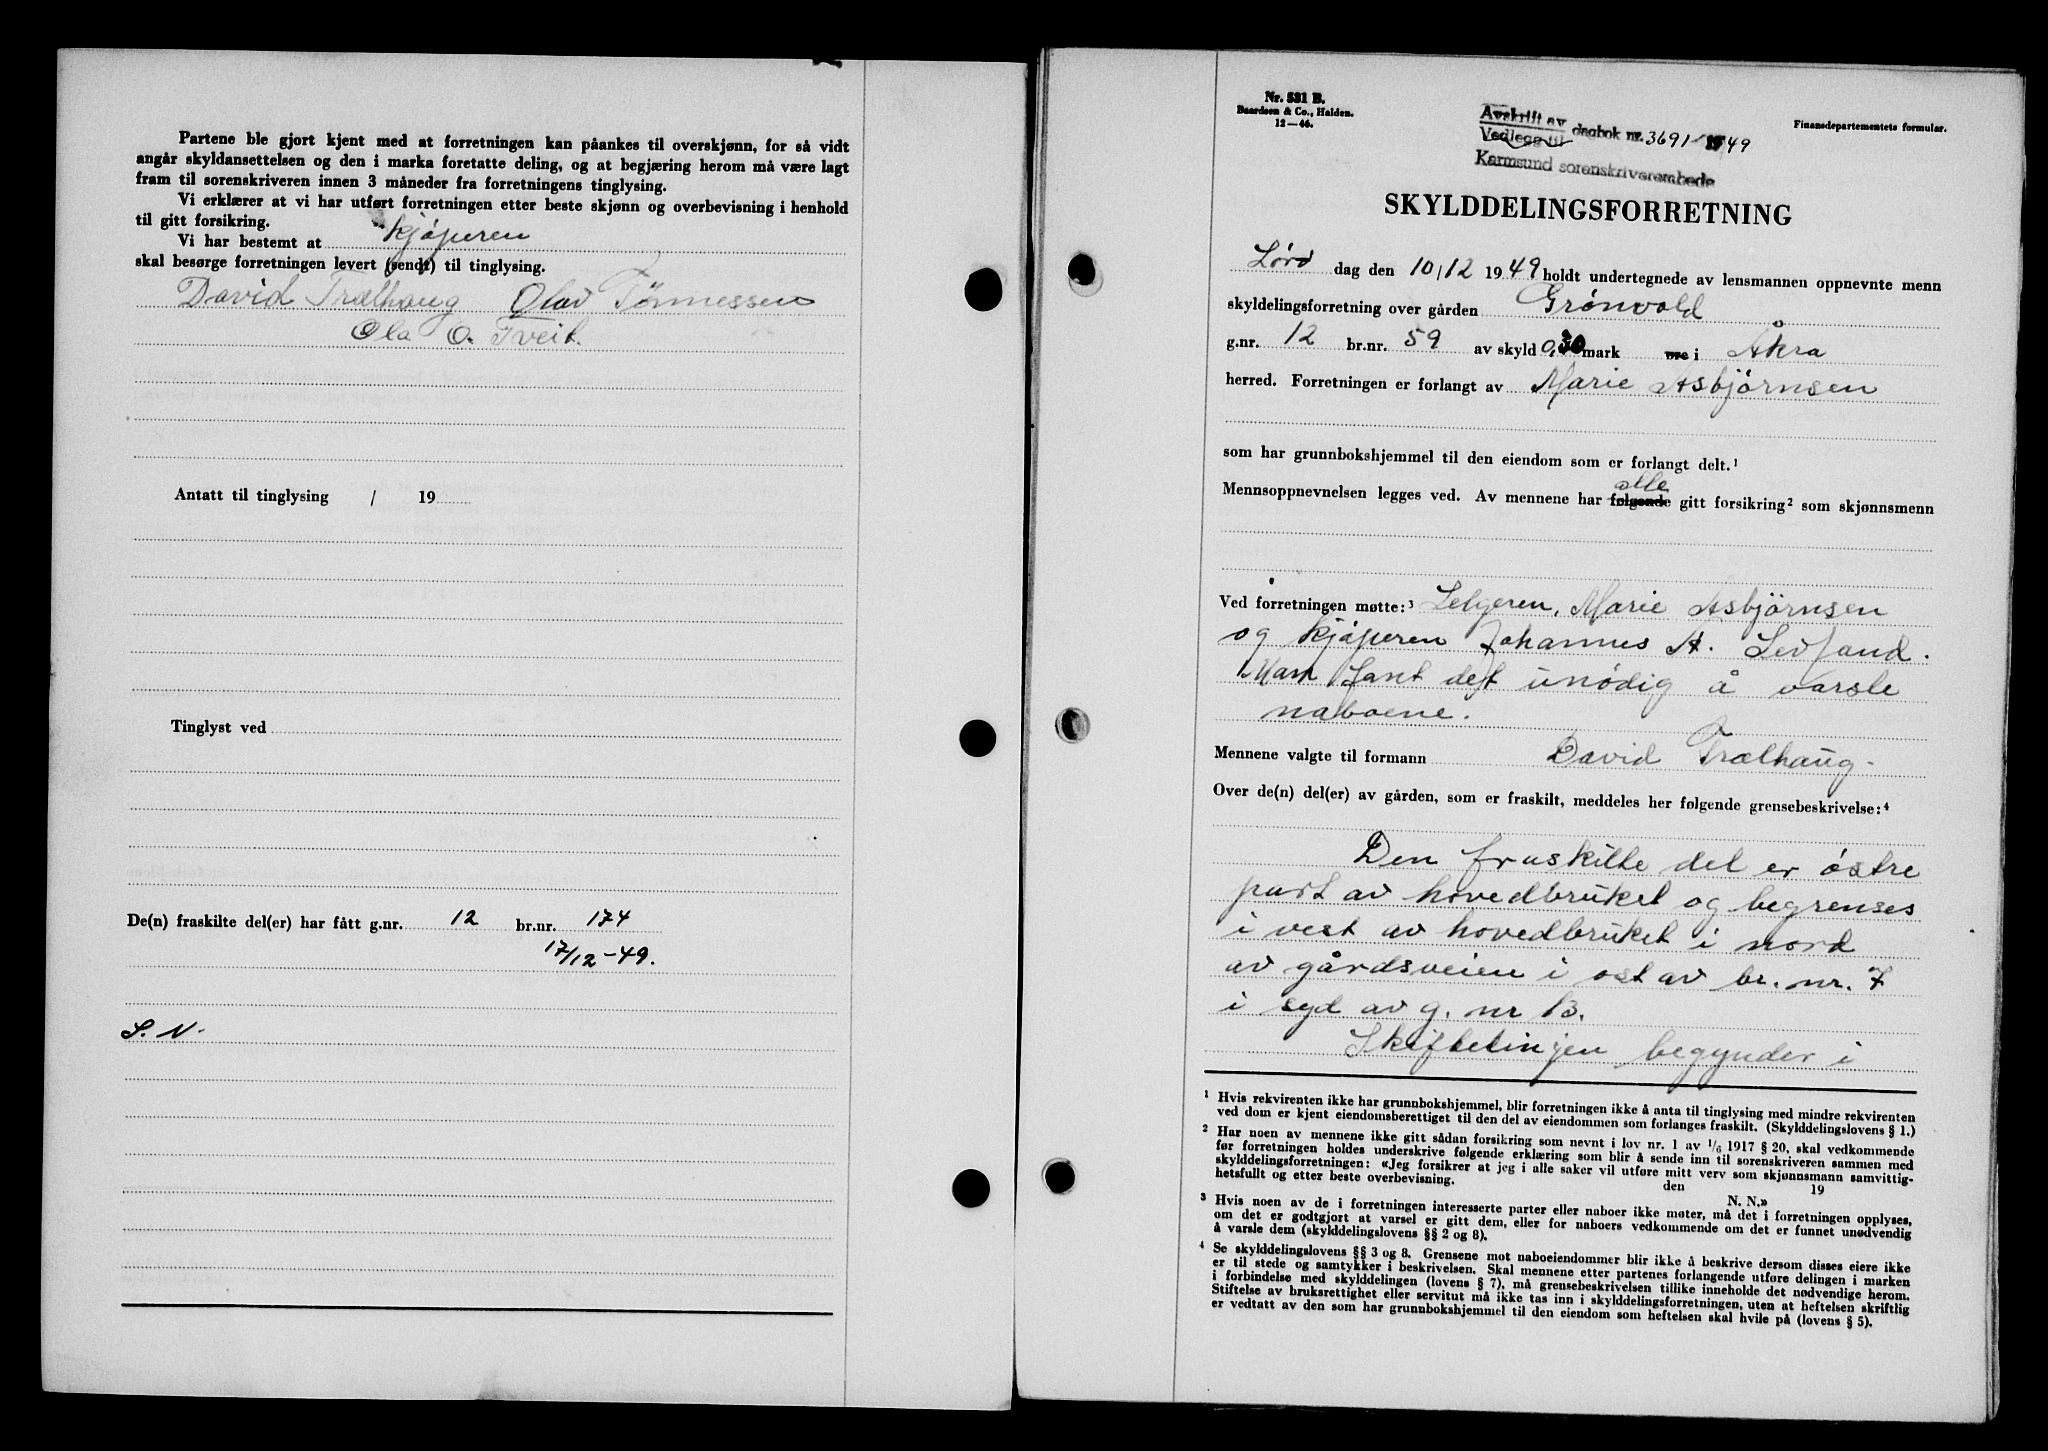 Partene ble gjort kjent med at forretningen kan påankes til overskjønn, for så vidt
angår skyldansettelsen og den i marka foretatte deling, og at begjæring herom må være lagt
fram til sorenskriveren innen 3 måneder fra forretningens tinglysing.
Vi erklærer at vi har utført forretningen etter beste skjønn og overbevisning i henhold
til gitt forsikring.
Vi har bestemt at kjøperen
skal besørge forretningen levert (sendt) til tinglysing.
David Trælhaug Olav Tönnessen
Ola O. Tveit.
Antatt til tinglysing / 19
Tinglyst ved
De(n) fraskilte del(er) har fått g.nr. 12 br.nr. 174
17/12-49.
S. N.
Nr. 531 B.
Baardsen & Co., Halden.
12-46.
Avskrift av
Vedlegg til dagbok nr. 3691 - 1949
Karmsund sorenskriverembede
Finansdepartementets formular.
SKYLDDELINGSFORRETNING
Lørd dag den 10/12 1949 holdt undertegnede av lensmannen oppnevnte menn
skyldelingsforretning over gården Grönvold
g.nr. 12 br.nr. 59 av skyld 0,30 mark øre i Åkra
herred. Forretningen er forlangt av Marie Asbjörnsen
som har grunnbokshjemmel til den eiendom som er forlangt delt.1
alle
Mennsoppnevnelsen legges ved. Av mennene har følgende gitt forsikring2 som skjønnsmenn
Ved forretningen møtte:3 Selgeren, Marie Asbjörnsen
og kjøperen Johannes A.
Man fant det unödig å varsle
naboene.
Mennene valgte til formann David Trælhaug.
Over de(n) del(er) av gården, som er fraskilt, meddeles her følgende grensebeskrivelse:4
Den fraskilte del er östre
part av hovedbruket og begrenses
i vest av hovedbruket i nord
av gårdsveien i ost av br. nr. 7
i syd av g. nr 13.
Skiftelinjen begynder i
1 Hvis rekvirenten ikke har grunnbokshjemmel, blir forretningen ikke å anta til tinglysing med mindre rekvirenten
ved dom er kjent eiendomsberettiget til den del av eiendommen som forlanges fraskilt. (Skylddelingslovens § 1.)
2 Har noen av mennene ikke gitt sådan forsikring som nevnt i lov nr. 1 av 1/6 1917 § 20, skal vedkommende
før forretningen holdes underskrive følgende erklæring som blir å sende inn til sorenskriveren sammen med
skylddelingsforretningen: «Jeg forsikrer at jeg i alle saker vil utføre mitt verv som skjønnsmann samvittig-
hetsfullt og etter beste overbevisning. den 19
N. N.»
3 Hvis noen av de i forretningen interesserte parter eller naboer ikke møter, må det i forretningen opplyses,
om det er godtgjort at varsel er gitt dem, eller for naboers vedkommende om det er funnet unødvendig
å varsle dem (skylddelingslovens §§ 2 og 8).
4 Se skylddelingslovens §§ 3 og 8. Grensene mot naboeiendommer blir ikke å beskrive dersom disses eiere ikke
er til stede og samtykker i beskrivelsen. Skal mennene etter partenes forlangende utføre delingen i marken
i forbindelse med skylddelingen (lovens § 7), må grensebeskrivelsen tillike inneholde det nødvendige herom.
Stiftelse av bruksrettighet eller servitut må ikke tas inn i skylddelingsforretningen, uten at heftelsen skriftlig
er vedtatt av den som har grunnbokshjemmel til den eiendom som heftelsen skal hvile på (lovens § 5).